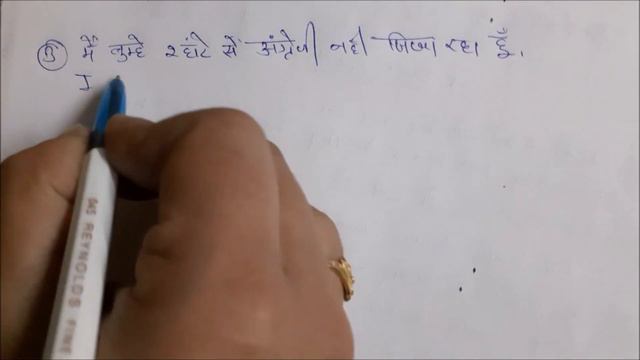 (B) मैं तुम्हे 2 घंटे से अंग्रेजी नही सिखा रहा हूँ।
I
045 REYNOLDS FINE